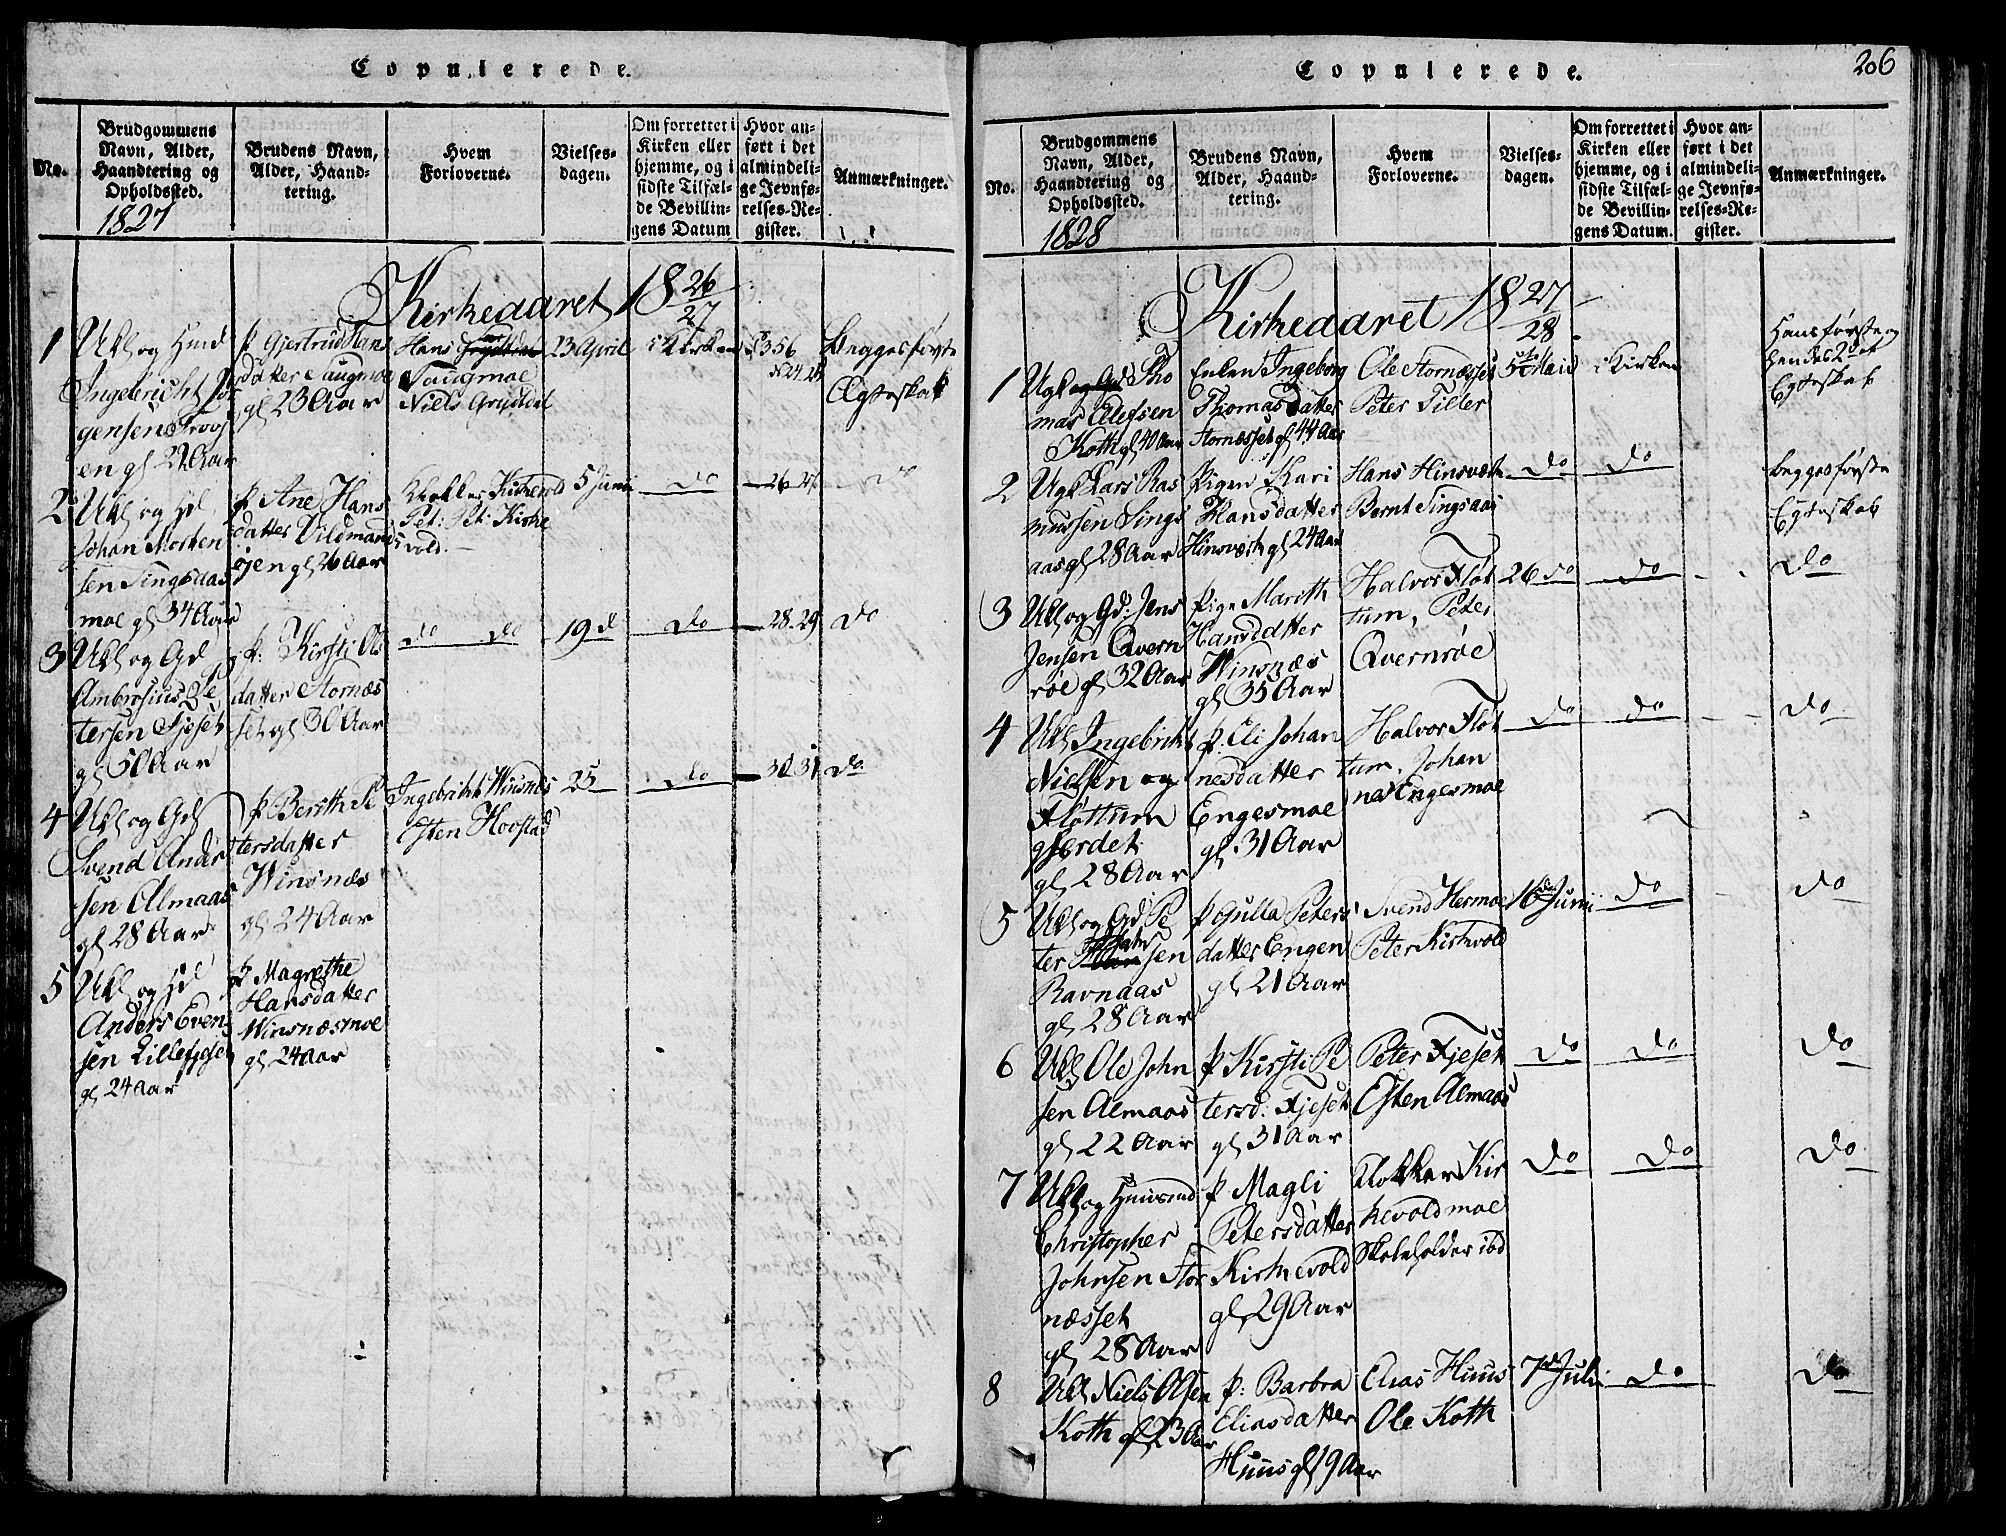 Copulerede.
No.
Brudgommens
Navn, Alder,
Haandtering og
Opholdssted.
1827
Brudens Navn,
Alder, Haand-
tering.
Hvem
Forloverne.
Vielses-
dagen.
Om forrettet i
Kirken eller
hjemme, og i
sidste Tilfæl-
de Bevillin-
gens Datum
Hvor an-
ført i det
almindeli-
ge Jevnfø-
relses-Re-
gister.
Anmærkninger.
Kirkeaaret 18 26/27
1
Ukl og Huusmd
Ingebricht Jør
gensen
en gl 22 Aar
P Gjertrud Hans
datter Taagmoe
gl 23 Aar
Hans
Taagmoe
Niels Grydstad
23 April
i Kirken
356
N 24 25
Begges første
Ægteskab
2
Ukl og Hd
Johan Morten
sen Singsaas
moe gl 34 Aar
P Ane Hans
datter Vildmands
øjen gl 26 Aar
Klokker Kirkevold
Pet: Pet: Kirke
vold.
5 Juni
do
26 27
do
3
Ukl og Gd
Ambrosius Pe
tersen Fjeset
gl 50 Aar
P: Kirsti Ols
datter Stornæs
set gl 30 Aar
do do
19 d
do
28-29
do
4
Ukl og Gd
Svend Ander
sen Almaas
gl 28 Aar
P Bereth Pe
tersdatter
Winsnæs
gl 24 Aar
Ingebricht Winsnæs
Esten Hovstad
25
do
30 31
do
5
Ukl og Hd
Anders Even
sen Lillefjeset
gl 24 Aar
P Magrethe
Hansdatter
Winsnæsmoe
gl 24 Aar
Copulerede.
206
No.
Brudgommens
Navn, Alder,
Haandtering og
Opholdssted.
1828
Brudens Navn,
Alder, Haand-
tering.
Hvem
Forloverne.
Vielses-
dagen.
Om forrettet i
Kirken eller
hjemme, og i
sidste Tilfæl-
de Bevillin-
gens Datum.
Hvor an-
ført i det
almindeli-
ge Jevnfø-
relses-Re-
gister.
Anmærkninger.
Kirkeaaret 18 27/28
1
Ugk og Gd Tho
mas Ellefsen
Koth gl 40 Aar
Enken Ingeborg
Thomasdatter
Stornæsset gl 44 Aar
Ole Stornæsset
Peter Tiller
5te Maii
i Kirken
Hans første og
hendes 2det
Egteskab
2
Ugk Lars Ras
mussen Sings
aas gl 28 Aar
Pigen Kari
Hansdatter
Hinsvæth gl 24 Aar
Hans Hinsvæth
Bernt Singsaas
do
do
begges første
Egteskab
3
Ukl og Gd: Jens
Jensen Qvern
røe gl 32 Aar
Pige Mareth
Hansdatter
Winsnæs
gl 35 Aar
Halvor Flot
tum, Peter
Qvernrøe
26 do
do
do
4
Ukl Ingebrikt
Nielsen og
Fløttum
gjerdet
gl 28 Aar
P: Eli Johan
nesdatter
Engesmoe
gl 31 Aar
Halvor Flot
tum, Johan
nes Engesmoe
do
do
do
5
Ukl og Gd Pe
ter sen
Ravnaas
gl 28 Aar
P Gulla Peters
datter Engen
gl 21 Aar
Svend Hermoe
Peter Kirkvold
16de Juni
do
do
6
Ukl Ole John
sen Almaas
gl 22 Aar
P Kirsti Pe
tersd: Fjeset
gl 31 Aar
Peter Fjeset
Esten Almaas
do
do
do
7
Ukl og Huusmd
Christopher
Johnsen Stor
næsset
gl 28 Aar
P Magli
Petersdatter
Kirkevold
gl 29 Aar
Klokker Kir
kevold moe
Skoleholder ibd
do
do
do
8
Ukl Niels Olsen
Koth gl 23 Aar
P: Barbra
Eliasdatter
Huus gl 19 Aar
Elias Huus
Ole Koth
7de Juli
do
do